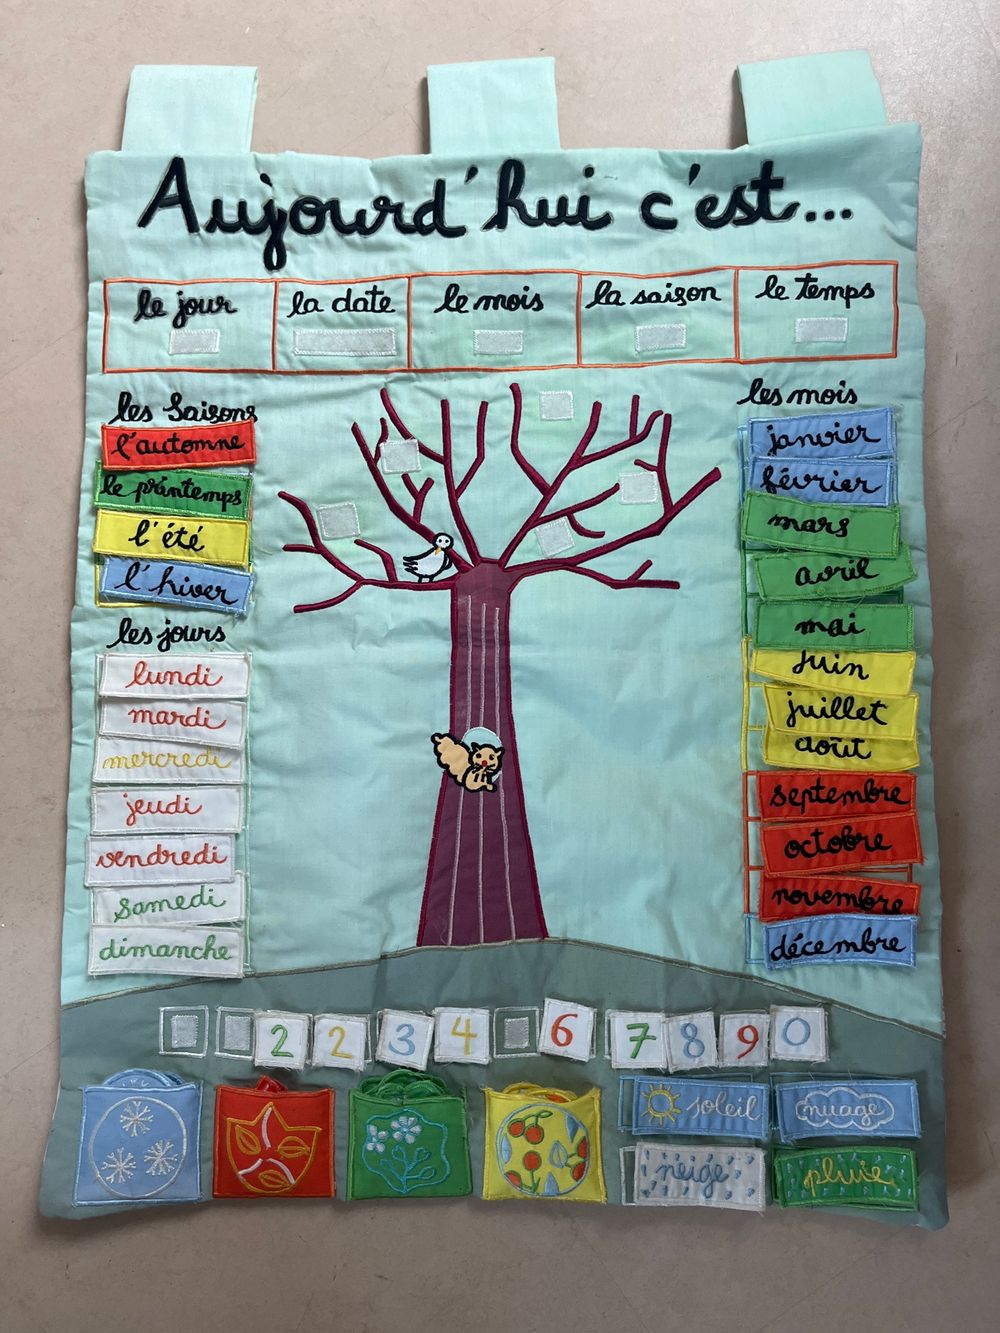 Aujourd'hui c'est...
le jour
la date
le mois
la saison
le temps
les Saisons
l'automne
le printemps
l'été
l'hiver
les jours
lundi
mardi
mercredi
jeudi
vendredi
samedi
dimanche
les mois
janvier
février
mars
avril
mai
juin
juillet
août
septembre
octobre
novembre
décembre
2 2 3 4 6 7 8 9 0
soleil
nuage
neige
pluie